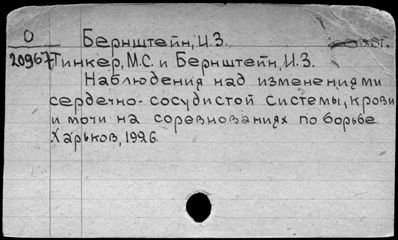 О Бернштейн, И.З.
20967 Тинкер, М.С. и Бернштейн, И.З.
Наблюдения над изменениями
сердечно-сосудистой системы, крови
и мочи на соревнованиях по борьбе.
Харьков, 1926.